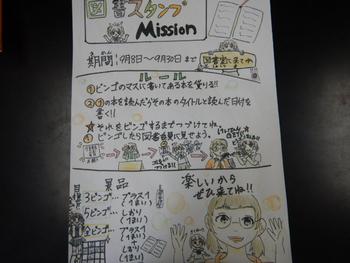 図書スタンプ
Mission
期間:9月3日〜9月30日まで
図書室に来てね
ルール
①ビンゴのマスに書いてある本を借りる!!
②①の本を読んだらその本のタイトルと読んだ日付を
書く!!
③それをビンゴするまでつづけてね。
④ビンゴしたら図書委員に見せよう。
景品
3ビンゴ…プラス1
(1まい)
5ビンゴ…しおり
(1まい)
全ビンゴ…プラス1
(1まい)
+
しおり
(1まい)
楽しいから
ぜひ来てね!!